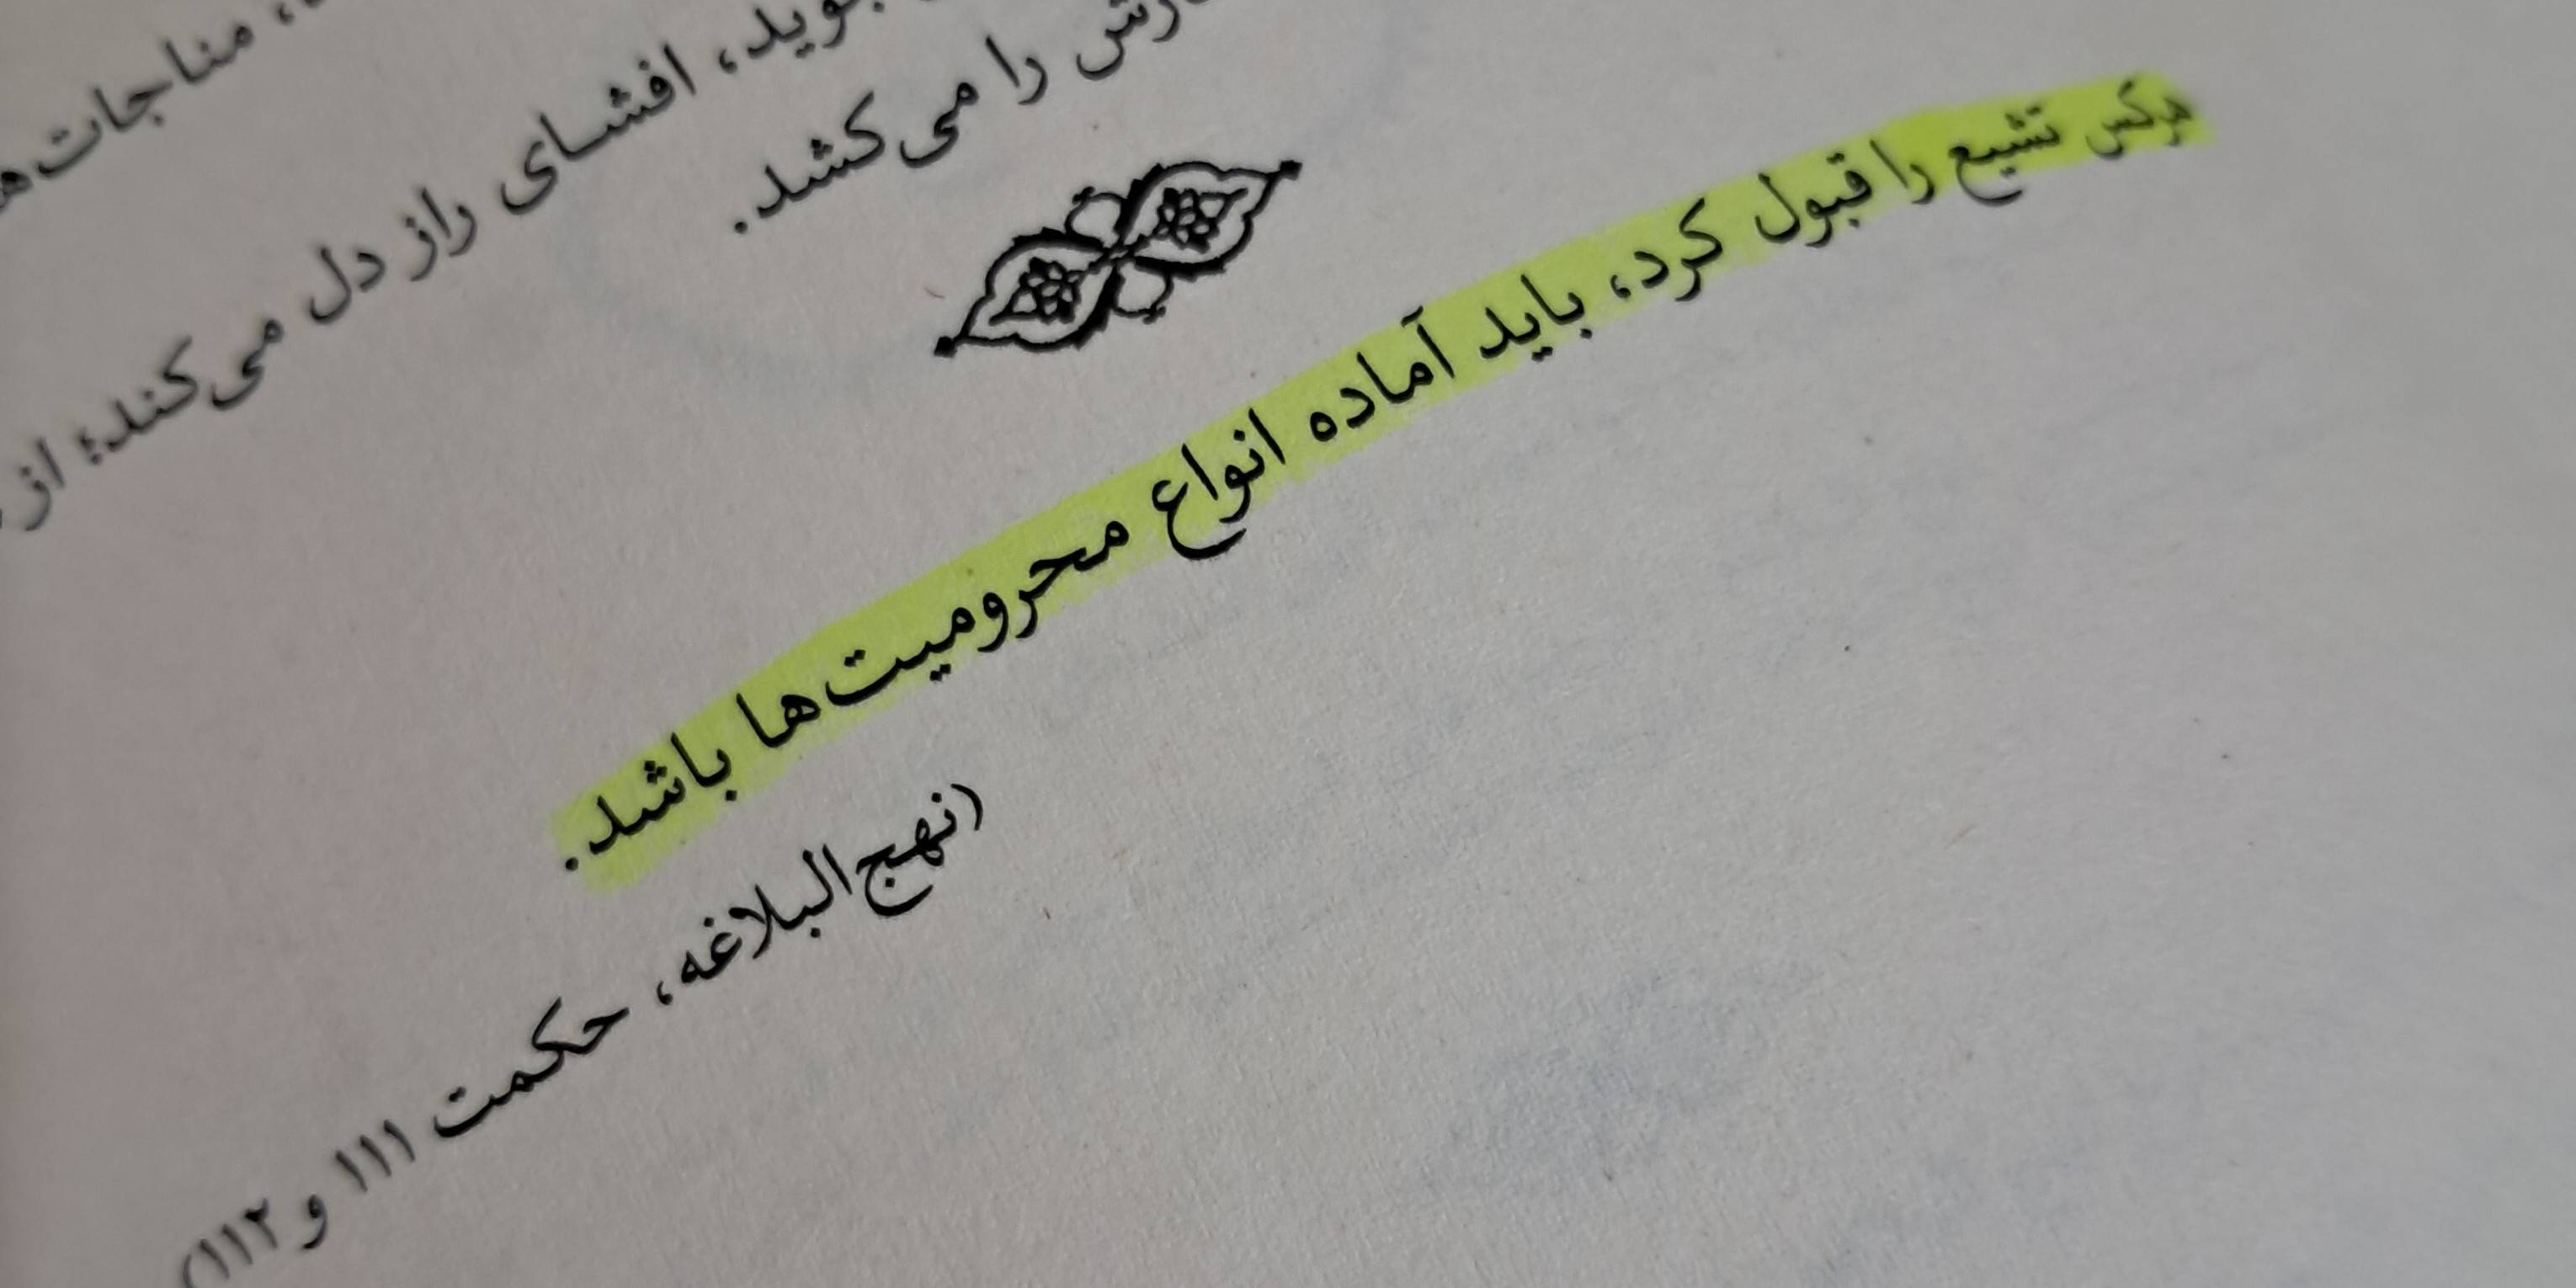 مناجات
افشای راز دل می‌کند؛ از
را می‌کشد.
هرکس تشیع را قبول کرد، باید آماده انواع محرومیت‌ها باشد.
(نهج‌البلاغه، حکمت ۱۱۱ و ۱۱۲)